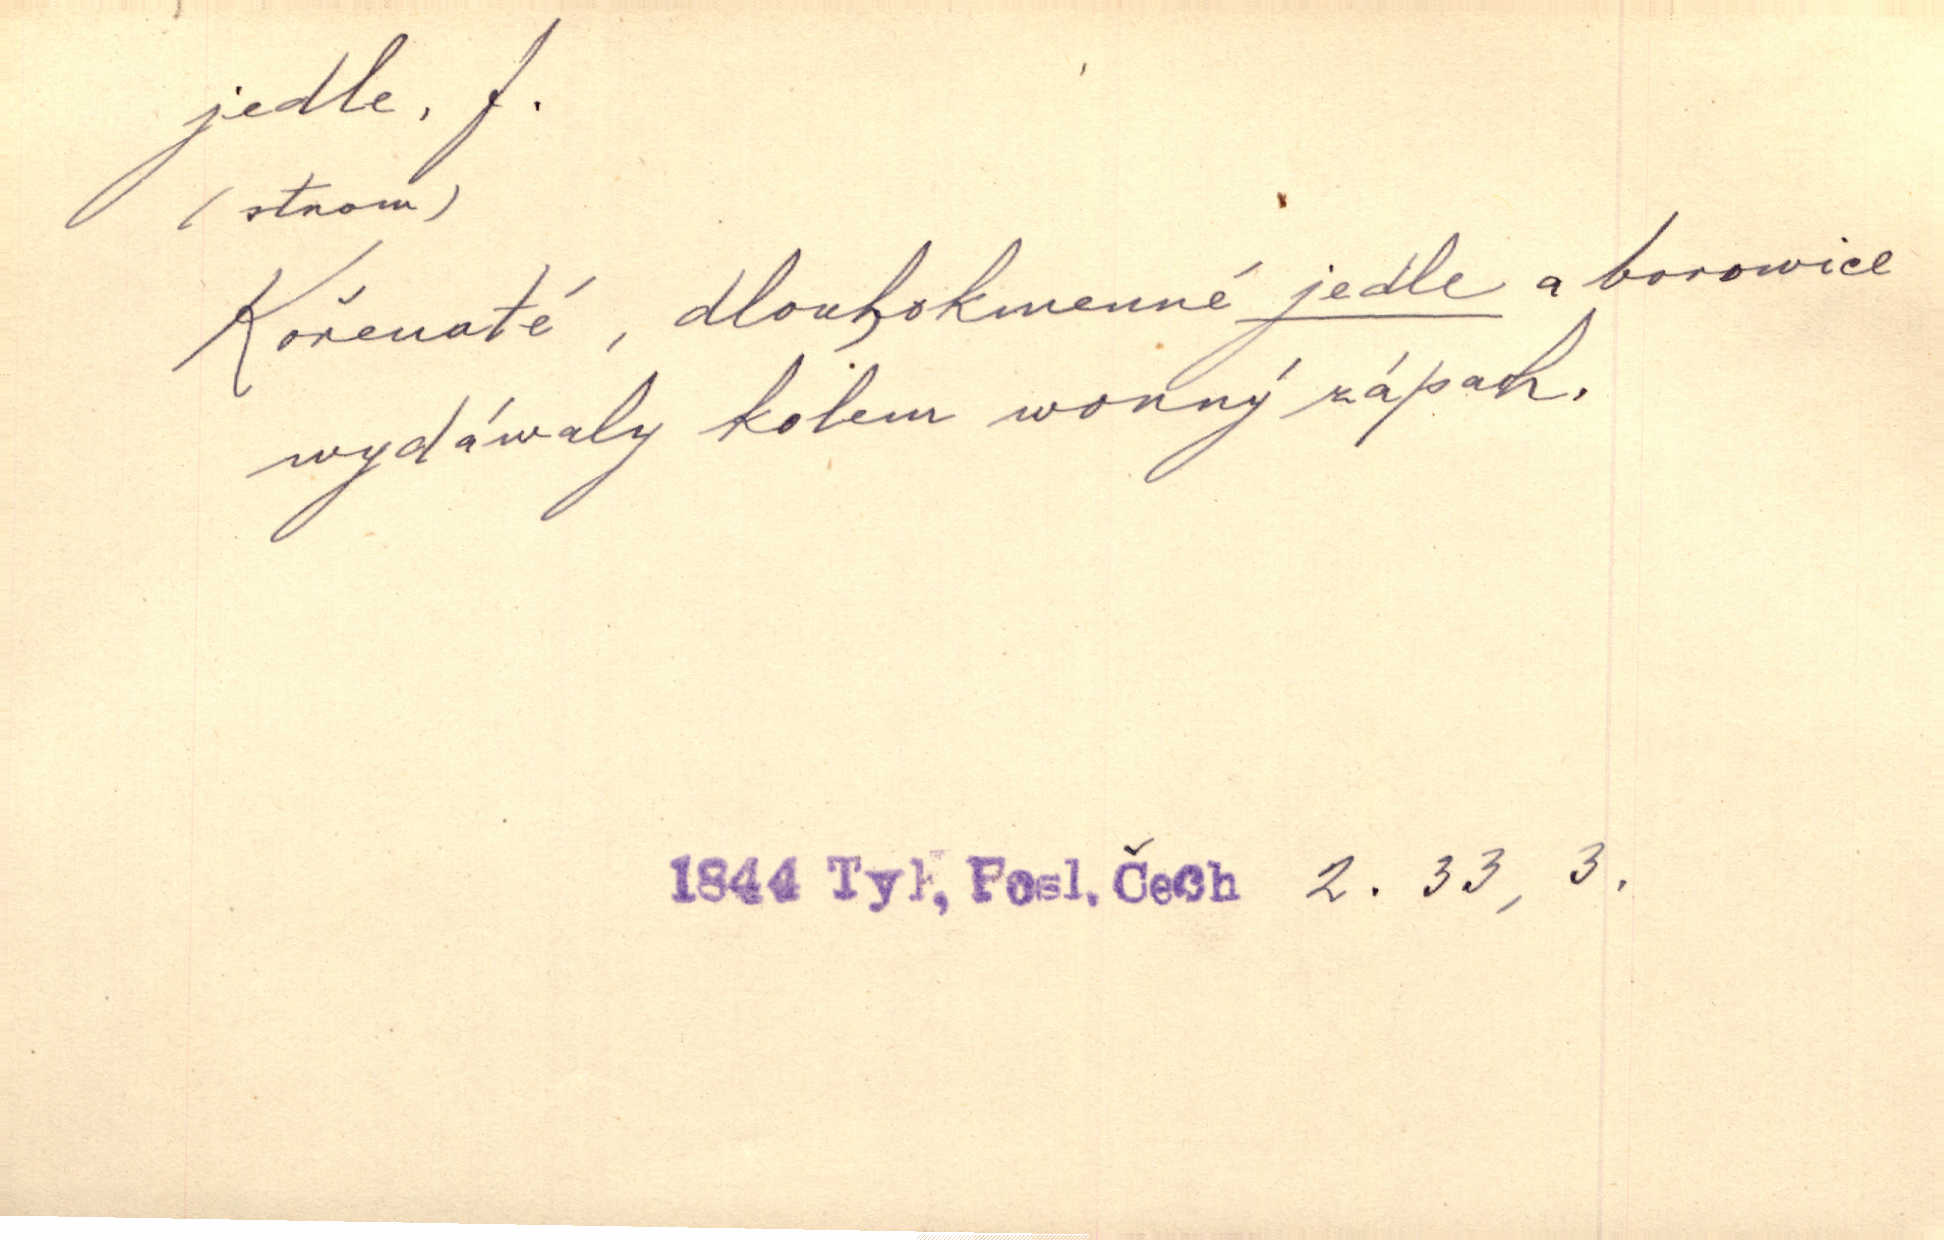 jedle, f.
(strom)
Kořenaté, dlouhokmenné jedle a borowice
wydáwaly kolem wonný zápach.
1844 Tyl, Posl. Čech 2. 33, 3.